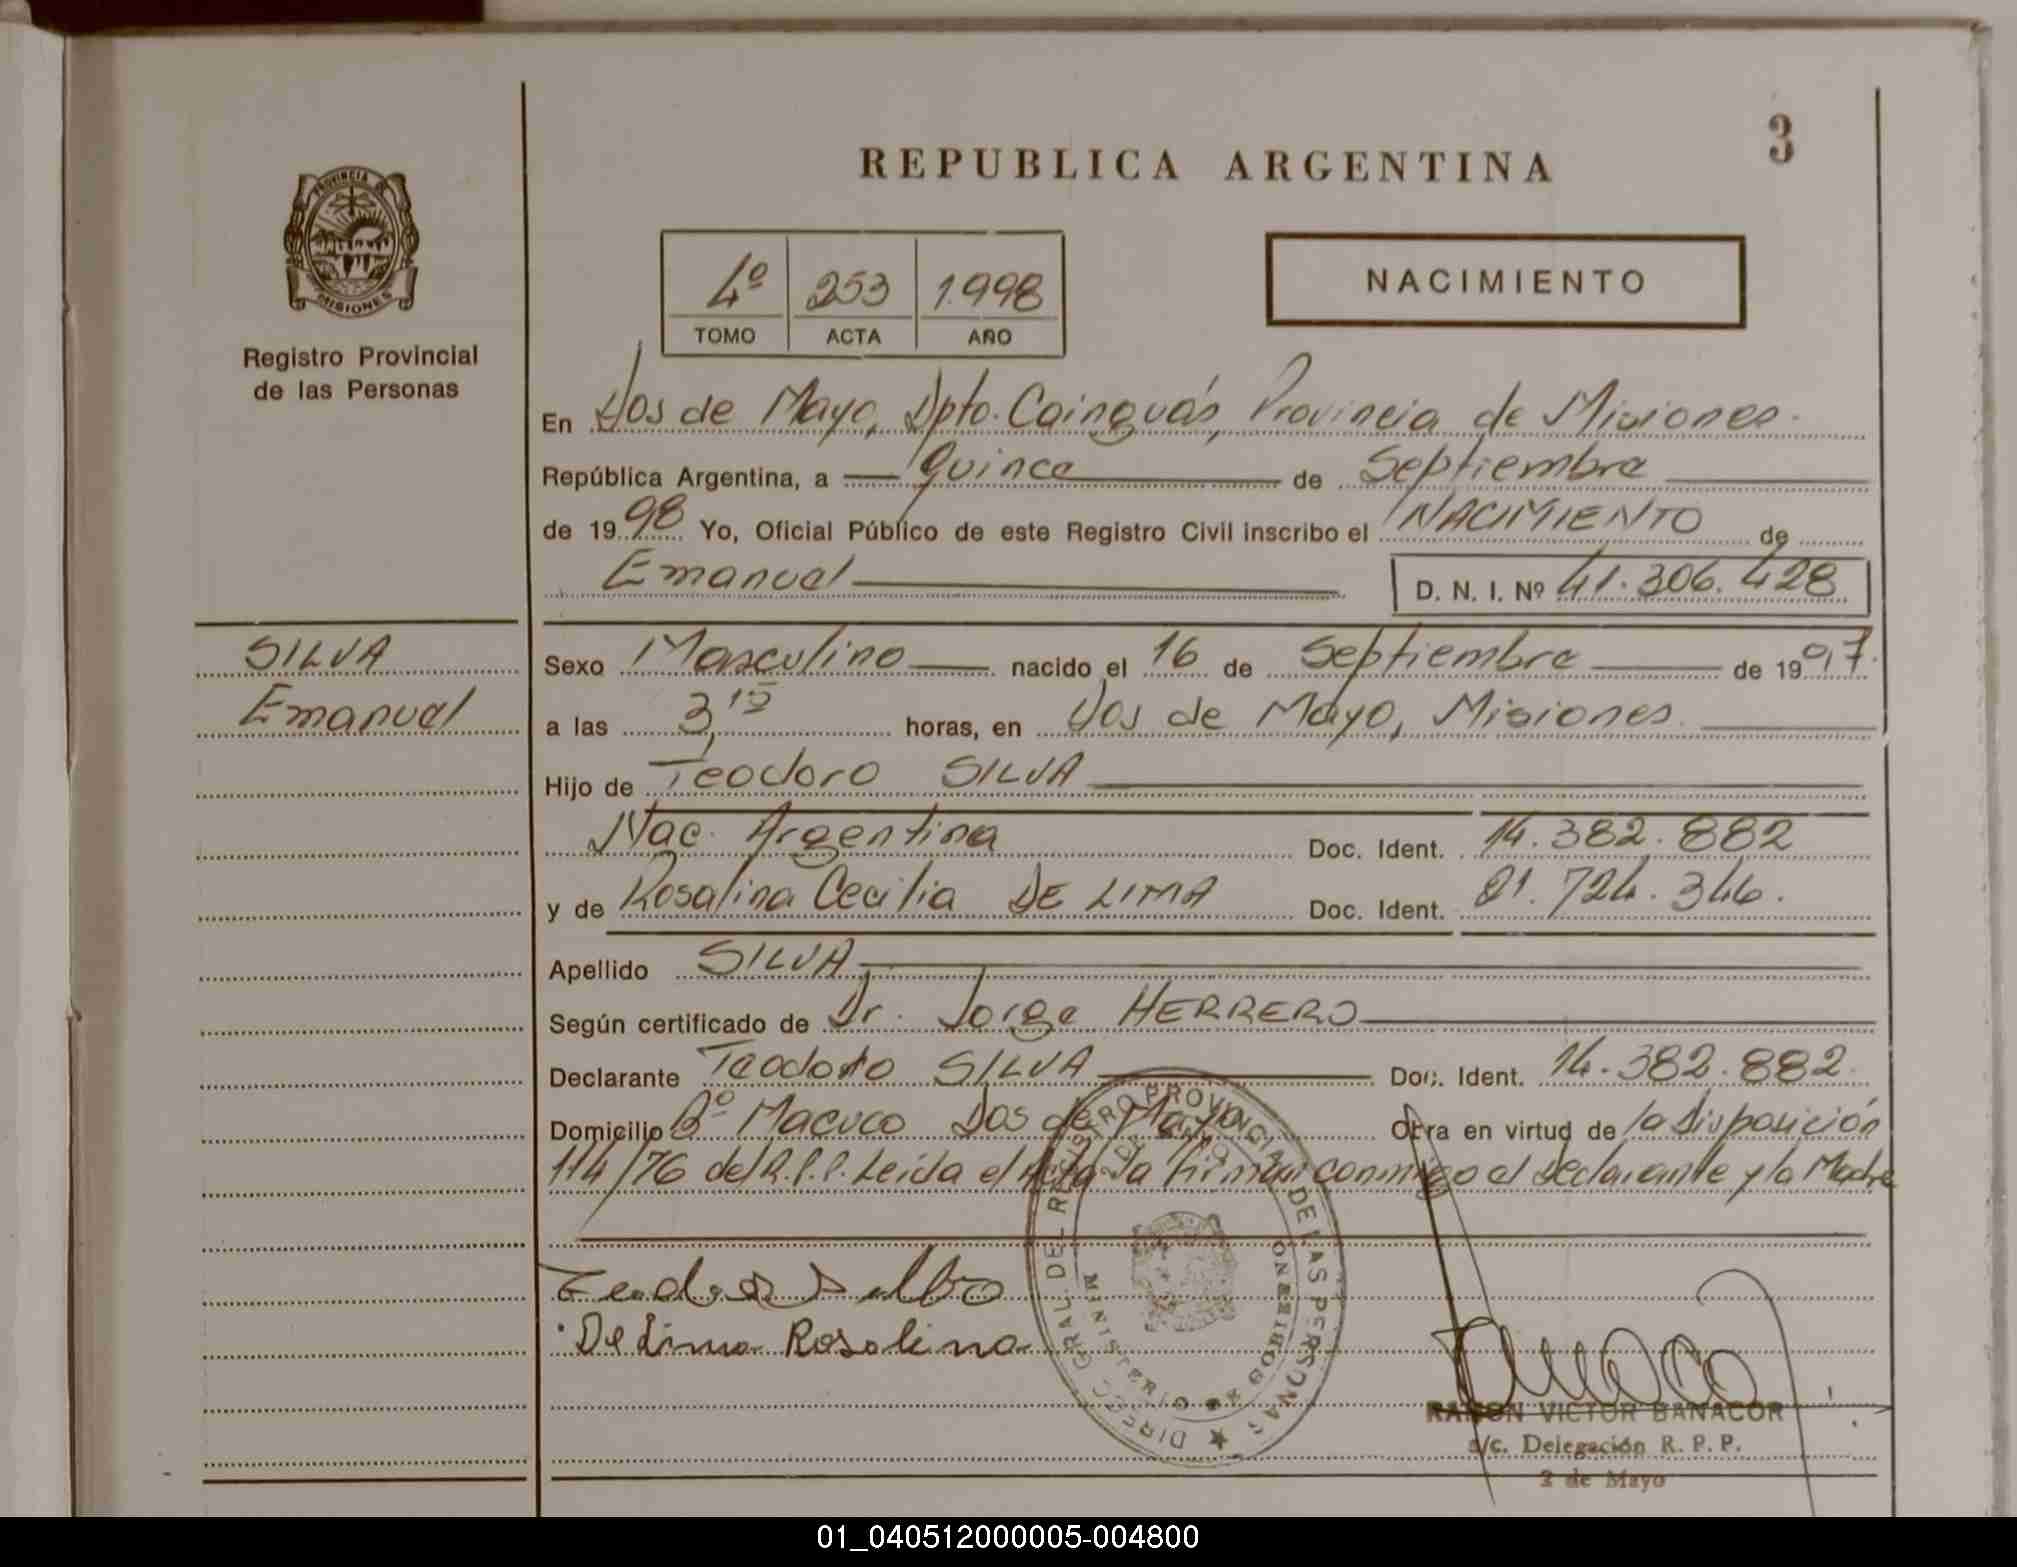 3
REPUBLICA ARGENTINA
PROVINCIA DE
MISIONES
Registro Provincial
de las Personas
4º 253 1.998
TOMO ACTA AÑO
NACIMIENTO
En Dos de Mayo, Dpto. Cainguás, Provincia de Misiones.
República Argentina, a Quince de Septiembre
de 1998 Yo, Oficial Público de este Registro Civil inscribo el NACIMIENTO de
Emanuel D. N. I. Nº 41.306.428
SILVA
Emanuel
Sexo Masculino nacido el 16 de Septiembre de 1997.
a las 3,15 horas, en Dos de Mayo, Misiones.
Hijo de Teodoro SILVA
Nac. Argentina Doc. Ident. 14.382.882
y de Rosalina Cecilia DE LIMA Doc. Ident. 21.724.346.
Apellido SILVA
Según certificado de Dr. Jorge HERRERO
Declarante Teodoro SILVA Doc. Ident. 14.382.882.
Domicilio Bº Macuco Dos de Mayo Obra en virtud de la Disposición
114/76 del R.P.P. Leída el Acta la firman conmigo el Declarante y la Madre
De Lima Rosalina
DIREC. GRAL. DEL REGISTRO PROVINCIAL DE LAS PERSONAS
MINISTERIO DE GOBIERNO
2 DE MAYO
RAMON VICTOR BANACOR
s/c. Delegación R. P. P.
2 de Mayo
01_040512000005-004800